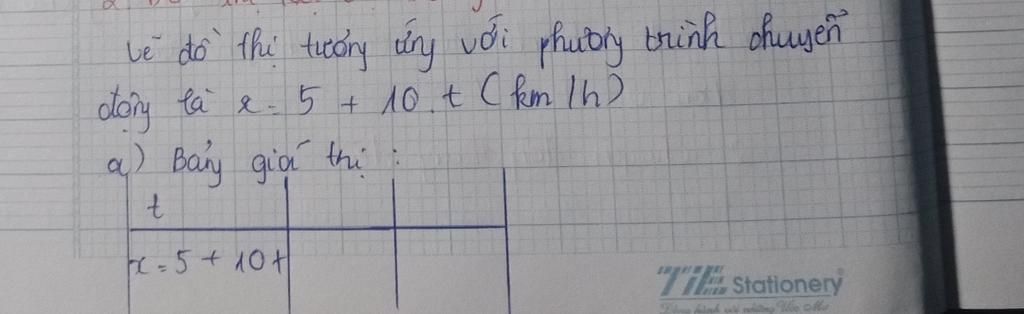 Vẽ đồ thị tương ứng với phương trình chuyển
động là x = 5 + 10.t (km/h)
a) Bảng giá thị :
t
x = 5 + 10t
TiE Stationery